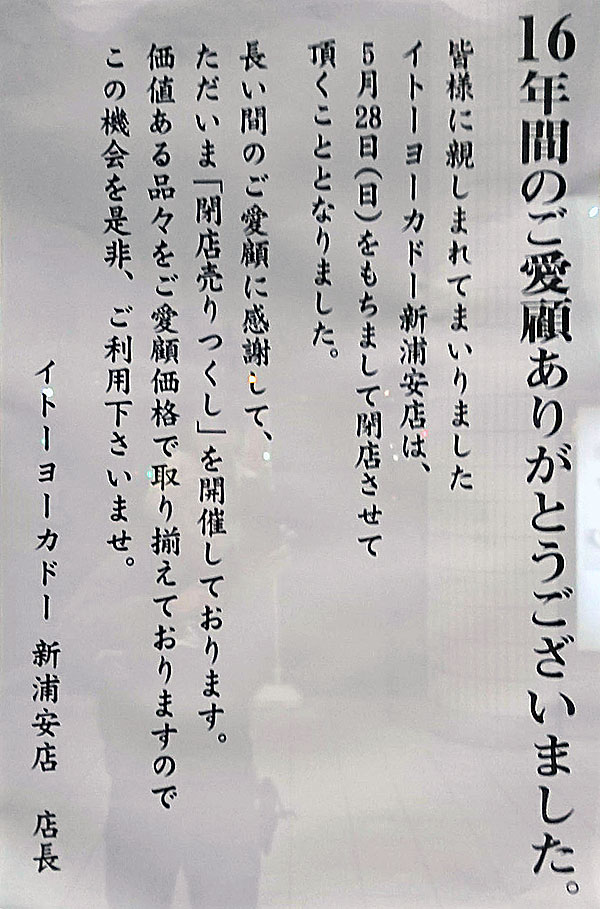 16年間のご愛顧ありがとうございました。
皆様に親しまれてまいりました
イトーヨーカドー新浦安店は、
5月28日(日)をもちまして閉店させて
頂くこととなりました。
長い間のご愛顧に感謝して、
ただいま「閉店売りつくし」を開催しております。
価値ある品々をご愛顧価格で取り揃えておりますので
この機会を是非、ご利用下さいませ。
イトーヨーカドー 新浦安店 店長